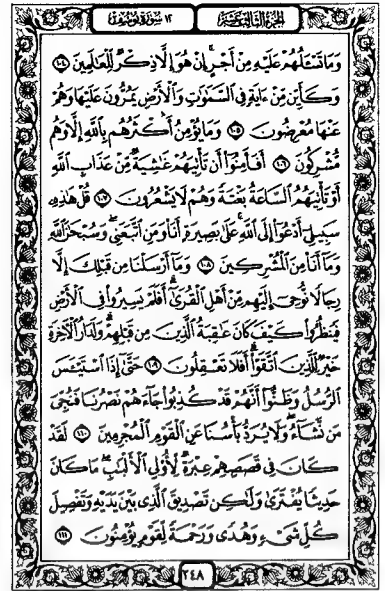 الجزء الثالث عشر ١٢ سورة يوسف
وَمَا تَسْـَٔلُهُمْ عَلَيْهِ مِنْ أَجْرٍ ۚ إِنْ هُوَ إِلَّا ذِكْرٌ لِّلْعَٰلَمِينَ ١٠٤
وَكَأَيِّن مِّنْ ءَايَةٍ فِى ٱلسَّمَٰوَٰتِ وَٱلْأَرْضِ يَمُرُّونَ عَلَيْهَا وَهُمْ
عَنْهَا مُعْرِضُونَ ١٠٥ وَمَا يُؤْمِنُ أَكْثَرُهُم بِٱللَّهِ إِلَّا وَهُم
مُّشْرِكُونَ ١٠٦ أَفَأَمِنُوٓا۟ أَن تَأْتِيَهُمْ غَٰشِيَةٌ مِّنْ عَذَابِ ٱللَّهِ
أَوْ تَأْتِيَهُمُ ٱلسَّاعَةُ بَغْتَةً وَهُمْ لَا يَشْعُرُونَ ١٠٧ قُلْ هَٰذِهِۦ
سَبِيلِىٓ أَدْعُوٓا۟ إِلَى ٱللَّهِ ۚ عَلَىٰ بَصِيرَةٍ أَنَا۠ وَمَنِ ٱتَّبَعَنِى ۖ وَسُبْحَٰنَ ٱللَّهِ
وَمَآ أَنَا۠ مِنَ ٱلْمُشْرِكِينَ ١٠٨ وَمَآ أَرْسَلْنَا مِن قَبْلِكَ إِلَّا
رِجَالًا نُّوحِىٓ إِلَيْهِم مِّنْ أَهْلِ ٱلْقُرَىٰٓ ۗ أَفَلَمْ يَسِيرُوا۟ فِى ٱلْأَرْضِ
فَيَنظُرُوا۟ كَيْفَ كَانَ عَٰقِبَةُ ٱلَّذِينَ مِن قَبْلِهِمْ ۗ وَلَدَارُ ٱلْـَٔاخِرَةِ
خَيْرٌ لِّلَّذِينَ ٱتَّقَوْا۟ ۗ أَفَلَا تَعْقِلُونَ ١٠٩ حَتَّىٰٓ إِذَا ٱسْتَيْـَٔسَ
ٱلرُّسُلُ وَظَنُّوٓا۟ أَنَّهُمْ قَدْ كُذِبُوا۟ جَآءَهُمْ نَصْرُنَا فَنُجِّىَ
مَن نَّشَآءُ ۖ وَلَا يُرَدُّ بَأْسُنَا عَنِ ٱلْقَوْمِ ٱلْمُجْرِمِينَ ١١٠ لَقَدْ
كَانَ فِى قَصَصِهِمْ عِبْرَةٌ لِّأُو۟لِى ٱلْأَلْبَٰبِ ۗ مَا كَانَ
حَدِيثًا يُفْتَرَىٰ وَلَٰكِن تَصْدِيقَ ٱلَّذِى بَيْنَ يَدَيْهِ وَتَفْصِيلَ
كُلِّ شَىْءٍ وَهُدًى وَرَحْمَةً لِّقَوْمٍ يُؤْمِنُونَ ١١١
٢٤٨